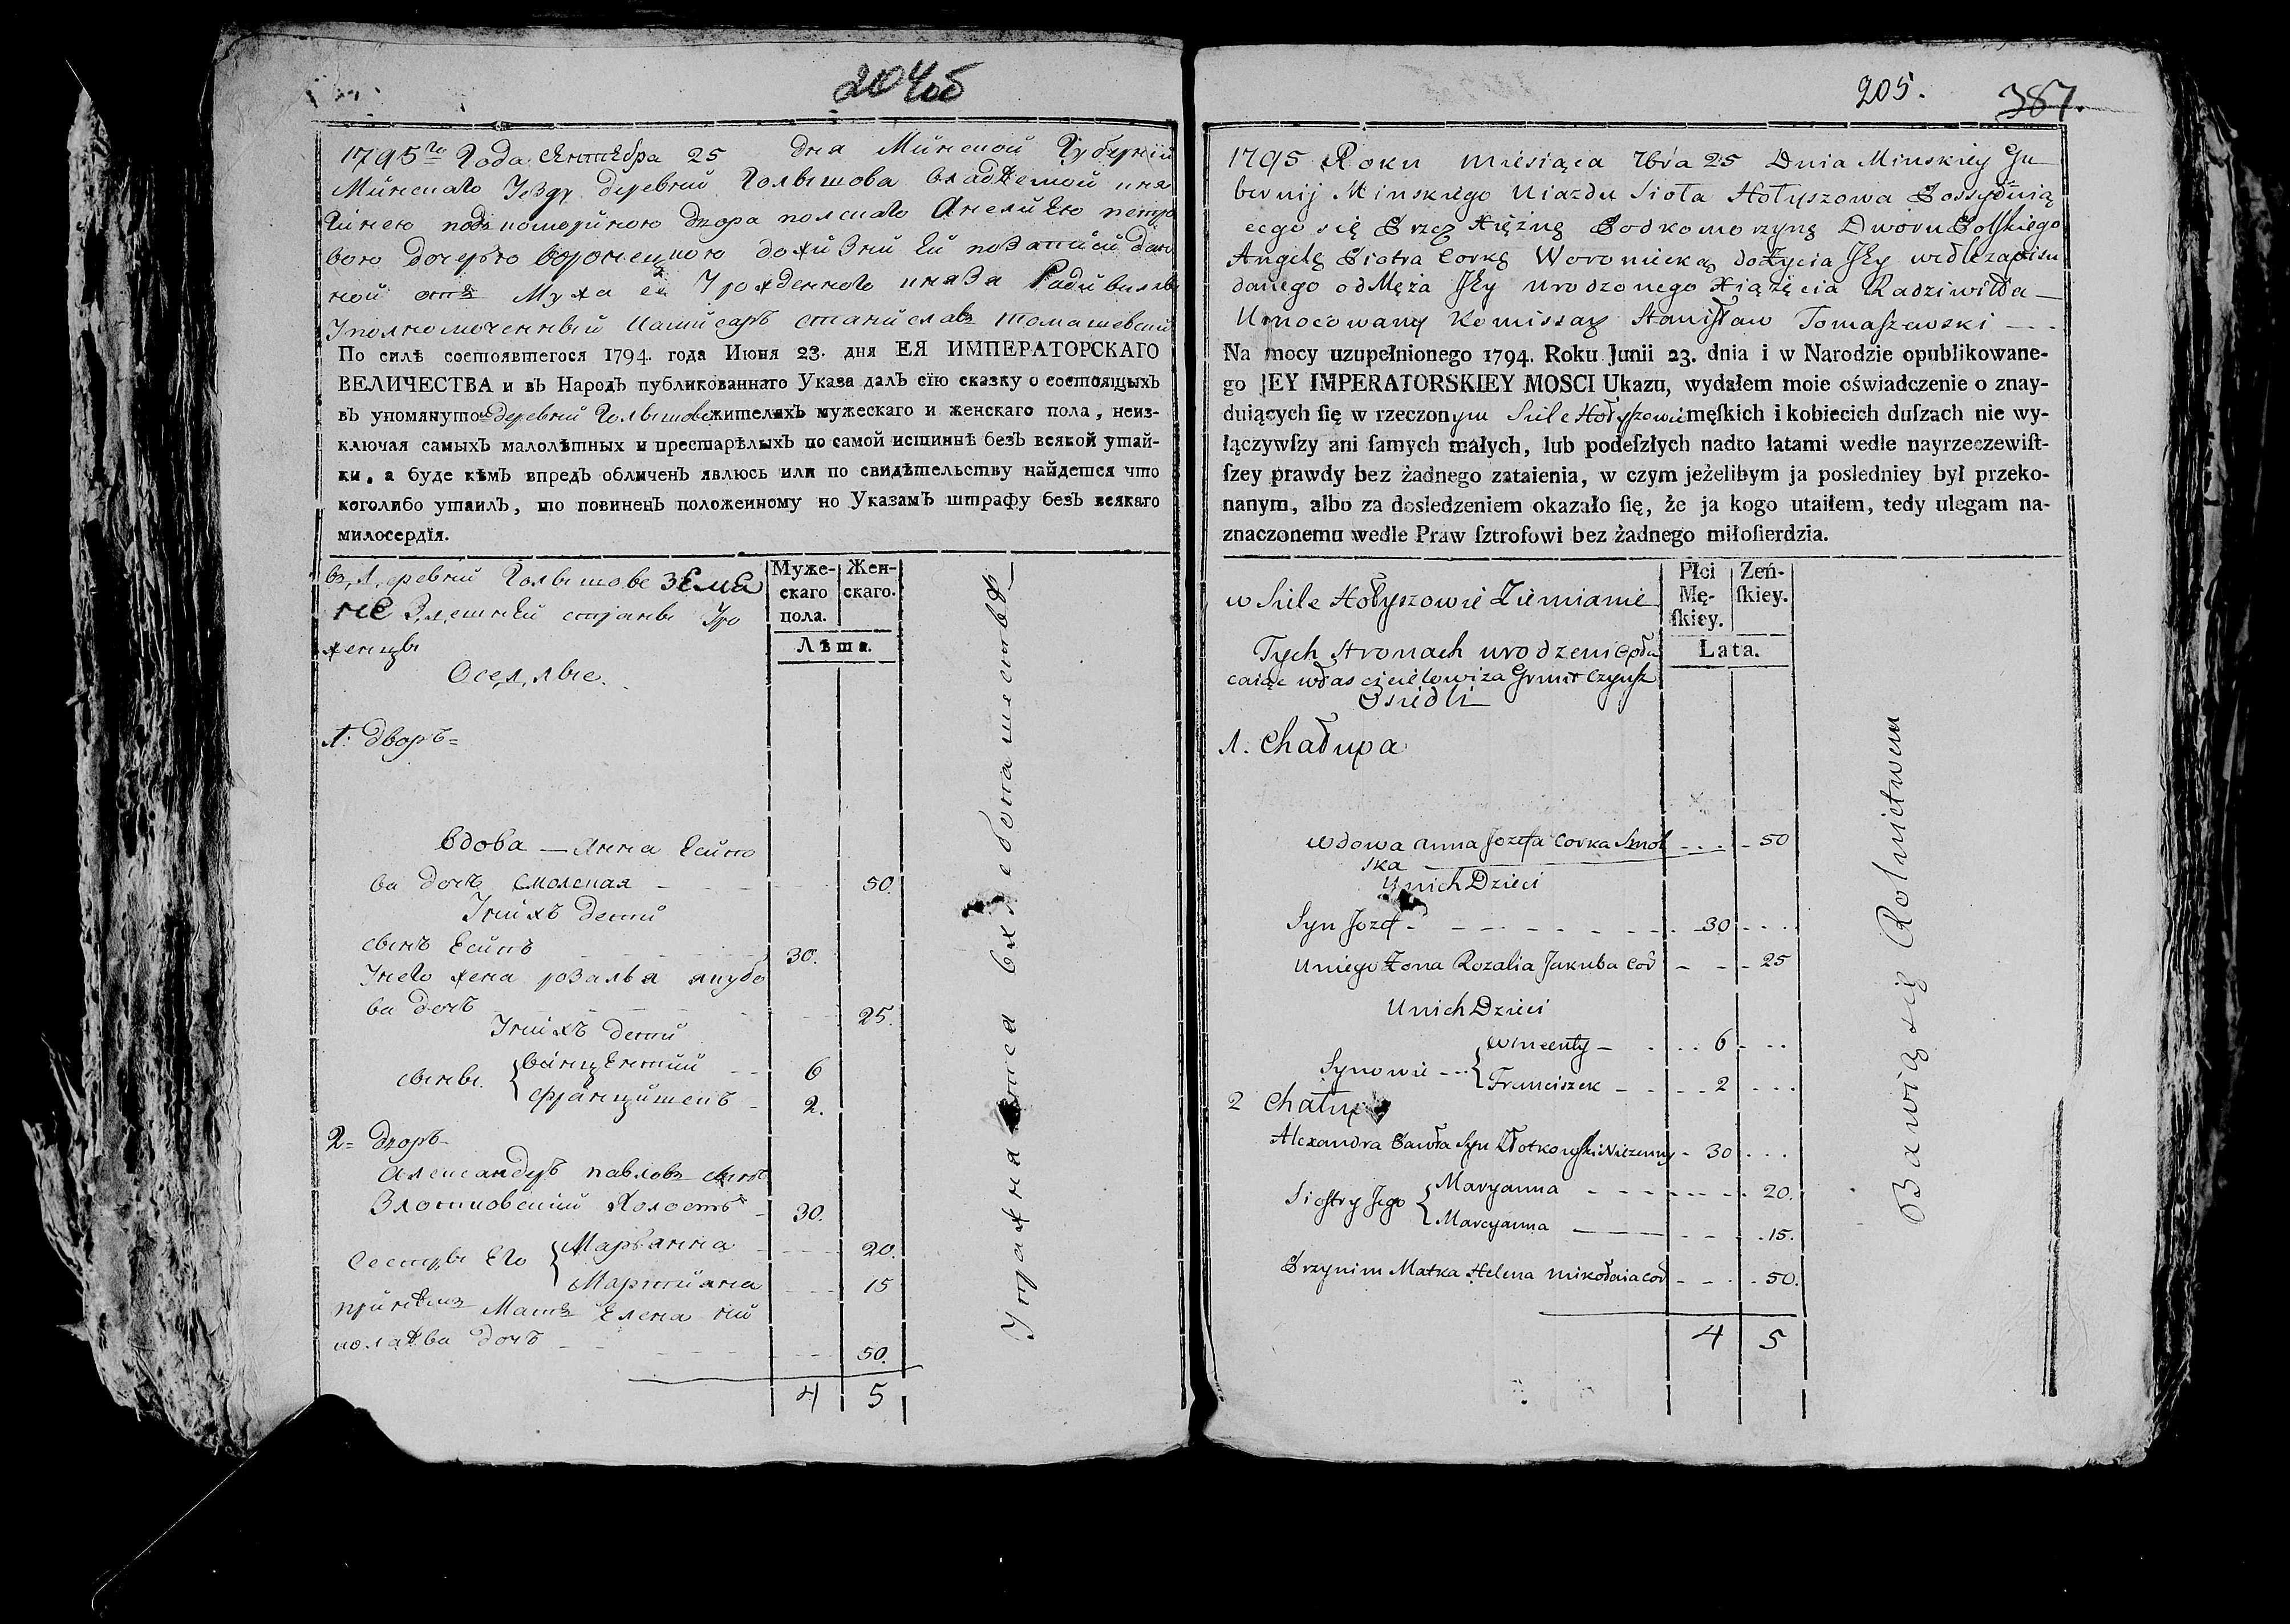 204об
1795го Года Сентебра 25 дня Минской Губернии
Минскаго Уезду деревни Голышова владѣемой кня
гинею подкоморыною двора полскаго Анелиею петро
вою дочерью воронецкою дожизни Ей по записи дан
ной отъ Мужа еѣ Урожденного князя Радивила
Уполномоченный Камисаръ Станиславъ Томашевский
По силѣ состоявшегося 1794. года Июня 23. дня ЕЯ ИМПЕРАТОРСКАГО
ВЕЛИЧЕСТВА и въ Народъ публикованнаго Указа далъ сїю сказку о состоящыхъ
въ упомянутой деревни Голышове жителяхъ мужескаго и женскаго пола, неиз-
ключая самыхъ малолѣтных и престарѣлыхъ по самой истиннѣ безъ всякой утай-
ки, а буде кѣмъ впредъ обличенъ явлюсь или по свидѣтельству найдется что
коголибо утаилъ, то повиненъ положенному по Указамъ штрафу безъ всякаго
милосердїя.
въ деревни Голышове Земя
не Здешней страны Уро
женцы
Оседлые.
Муже-
скаго
пола.
Жен-
скаго.
Лѣта.
1: дворъ=
вдова — Анна Есифо
ва дочь Смолская 50.
Уних детий
сынъ Есипъ 30.
Унего жена розалья якубо
ва дочь 25.
Уних детий
сыны. { винцентий 6
францишекъ 2.
2= дворъ
Александръ павловъ сынъ
Злотковский Холостъ 30.
Сестры Его { Марьянна 20.
Мартияна 15
принемъ Мать Елена ни
колаева дочь 50.
4 5
Упражняются в хлебопашествѣ
205.
387.
1795 Roku miesiąca 7bra 25 Dnia Minskiey Gu
bernij Minskiego Uiazdu Sioła Hołyszowa Possydnią
cego się Przez Xiężnę Podkomorzynę Dworu Polskiego
Angelę Piotra Corkę Woroniecką do Życia Jey wedle zapisu
danego od Męża Jey urodzonego Xiążęcia Radziwiłła —
Umocowany Komissarz Stanisław Tomaszewski — - -
Na mocy uzupełnionego 1794. Roku Junii 23. dnia i w Narodzie opublikowane-
go JEY IMPERATORSKIEY MOSCI Ukazu, wydałem moie oświadczenie o znay-
duiących ſię w rzeczonym Siele Hołyszowie męſkich i kobiecich duſzach nie wy-
łączywſzy ani ſamych małych, lub podeſzłych nadto latami wedle nayrzeczewiſt-
ſzey prawdy bez żadnego zataienia, w czym jeżelibym ja posledniey był przeko-
nanym, albo za dosledzeniem okazało ſię, że ja kogo utaiłem, tedy ulegam na-
znaczonemu wedle Praw ſztrofowi bez żadnego miłoſierdzia.
w Siele Hołyszowie Ziemianie
Tych stronach urodzeni opła
caiąc włascicielowi za Grunt Czynsz
Osiedli
Płci
Mę-
ſkiey.
Zeń-
ſkiey.
Lata.
1. Chałupa
Wdowa Anna Jozefa Corka Smol 50
ska
Unich Dzieci
Syn Jozef 30
Uniego Żona Rozalia Jakuba Cor 25
Unich Dzieci
Synowie { Wincenty 6
Franciszek 2
2 Chałupa
Alexandra Pawła Syn Złotkowski Nieżenny 30
Siostry Jego { Maryanna 20.
Marcyanna 15.
Przynim Matka Helena Mikołaia Cor 50.
4 5
Bawią się Rolnictwem